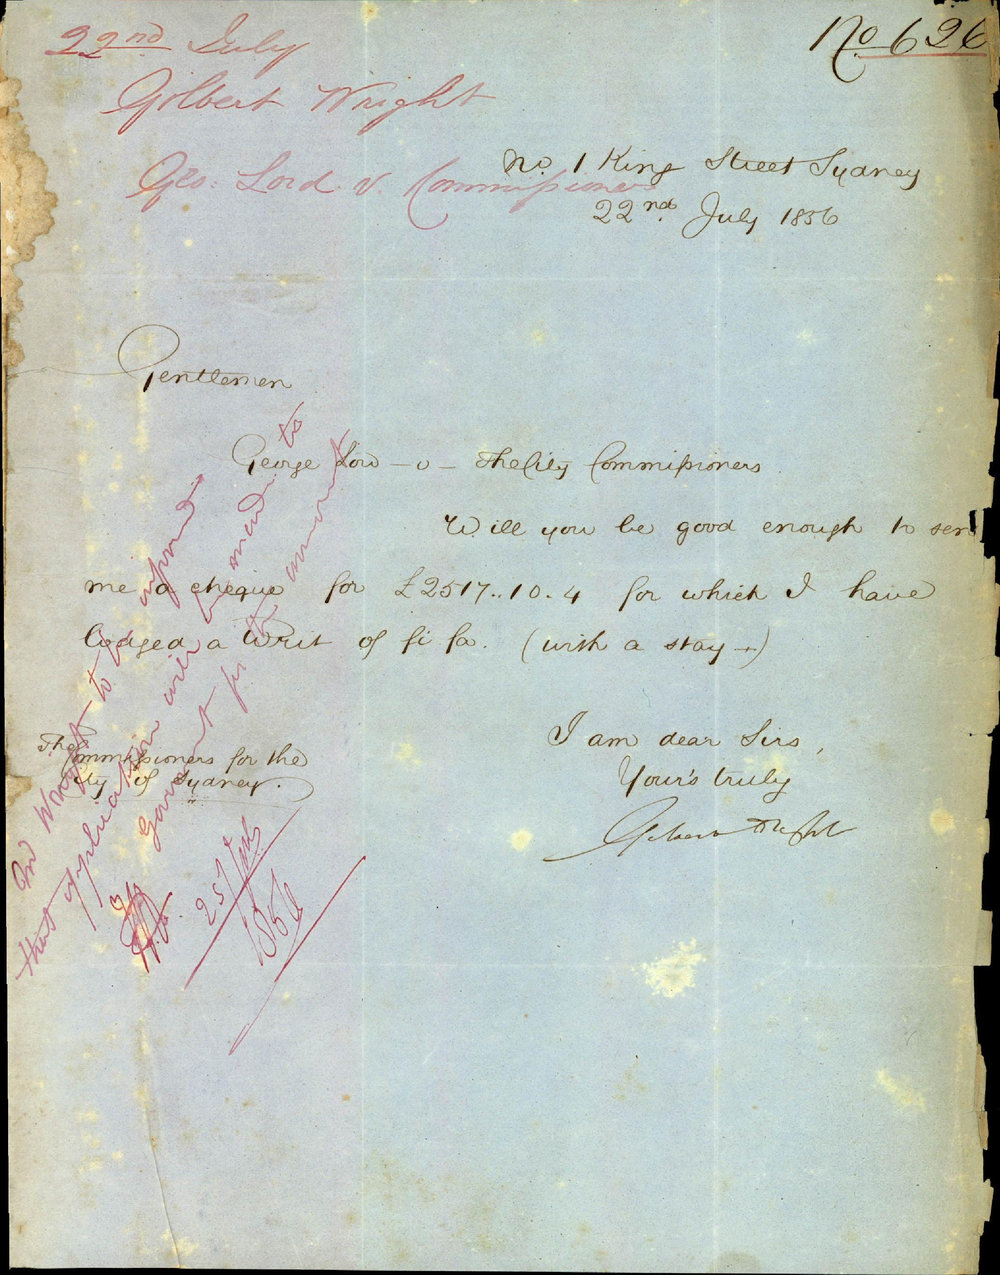 No 626
22nd July
Gilbert Wright
Geo. Lord v. Commissioners
No. 1 King Street Sydney
22nd July 1856
Gentlemen
George Lord - v - The City Commissioners
Will you be good enough to send
me a cheque for £2517..10.4 for which I have
lodged a Writ of fi fa. (with a stay -)
I am dear Sirs,
Your's truly
Gilbert Wright
The Commissioners for the
City of Sydney.
Mr Wright to be informed
that application will be made to
Government for the amount
25 July
1856